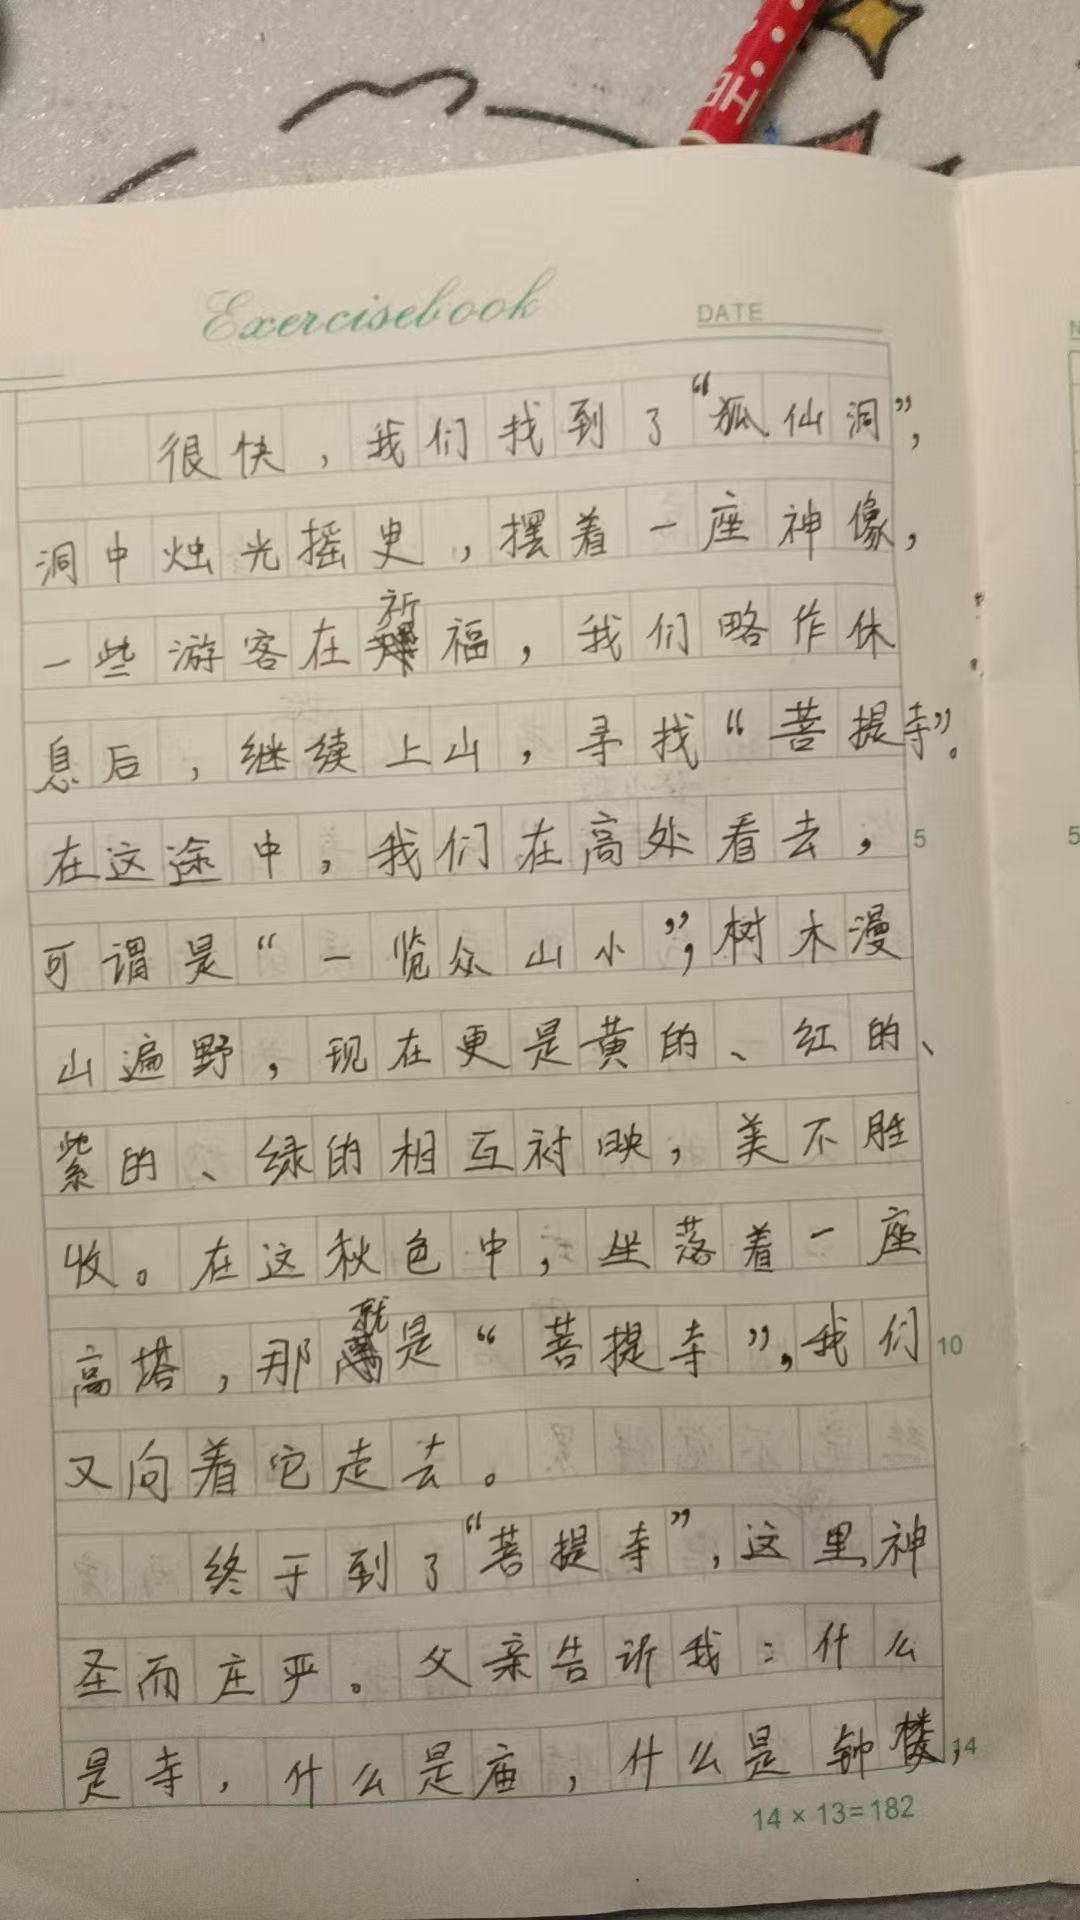 Exercisebook
DATE
很快，我们找到了“狐仙洞”，
洞中烛光摇曳，摆着一座神像，
一些游客在祈福，我们略作休
息后，继续上山，寻找“菩提寺”。
在这途中，我们在高处看去， 5
可谓是“一览众山小”，树木漫
山遍野，现在更是黄的、红的、
紫的、绿的相互衬映，美不胜
收。在这秋色中，坐落着一座
高塔，那就是“菩提寺”，我们 10
又向着它走去。
终于到了“菩提寺”，这里神
圣而庄严。父亲告诉我：什么
是寺，什么是庙，什么是钟楼， 14
14×13=182
5